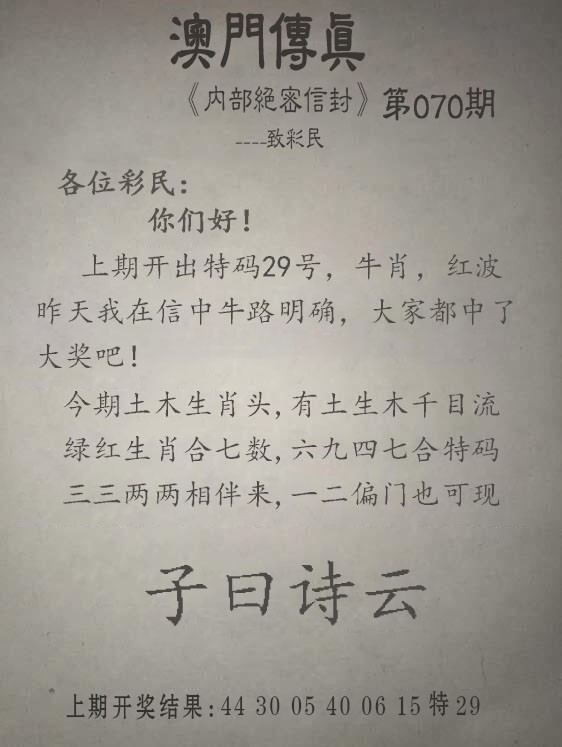 澳門傳眞
《内部絕密信封》第070期
----致彩民
各位彩民:
你们好!
上期开出特码29号，牛肖，红波
昨天我在信中牛路明确，大家都中了
大奖吧!
今期土木生肖头,有土生木千目流
绿红生肖合七数,六九四七合特码
三三两两相伴来,一二偏门也可现
子曰诗云
上期开奖结果:44 30 05 40 06 15特29